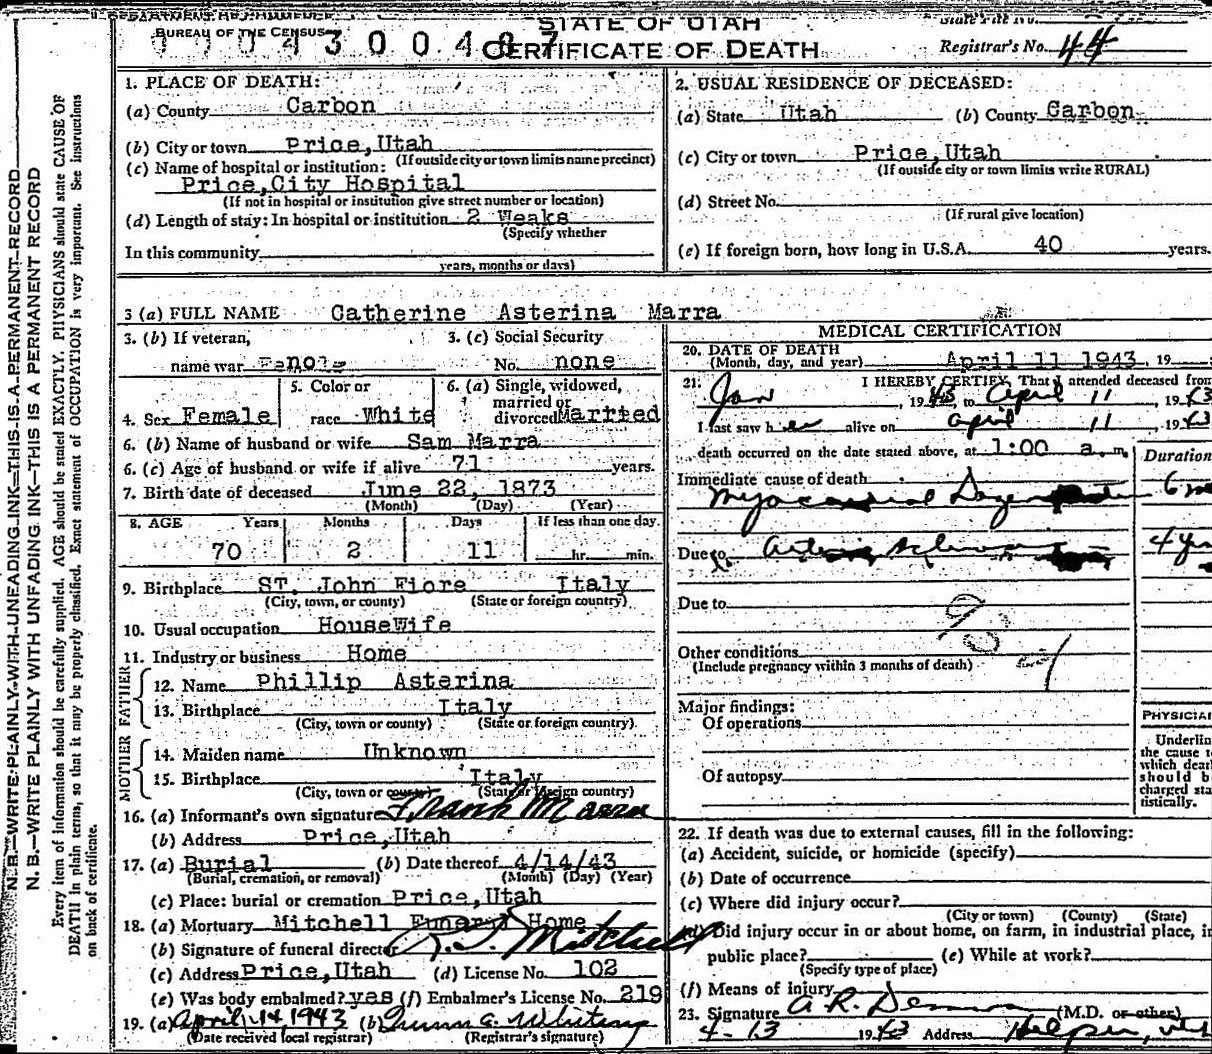 BUREAU OF THE CENSUS
STATE OF UTAH
CERTIFICATE OF DEATH
Registrar's No. 44
1. PLACE OF DEATH:
(a) County Carbon
(b) City or town Price, Utah
(If outside city or town limits name precinct)
(c) Name of hospital or institution:
Price, City Hospital
(If not in hospital or institution give street number or location)
(d) Length of stay: In hospital or institution 2 Weaks
(Specify whether
In this community
years, months or days)
2. USUAL RESIDENCE OF DECEASED:
(a) State Utah (b) County Carbon
(c) City or town Price, Utah
(If outside city or town limits write RURAL)
(d) Street No.
(If rural give location)
(e) If foreign born, how long in U.S.A. 40 years.
3 (a) FULL NAME Catherine Asterina Marra
3. (b) If veteran,
name war
3. (c) Social Security
No. none
4. Sex Female
5. Color or
race White
6. (a) Single, widowed,
married or
divorced Married
6. (b) Name of husband or wife Sam Marra
6. (c) Age of husband or wife if alive 71 years.
7. Birth date of deceased June 22, 1873
(Month) (Day) (Year)
8. AGE Years Months Days If less than one day
70 2 11 hr. min.
9. Birthplace ST. John Fiore Italy
(City, town, or county) (State or foreign country)
10. Usual occupation HouseWife
11. Industry or business Home
FATHER
12. Name Phillip Asterina
13. Birthplace Italy
(City, town or county) (State or foreign country)
MOTHER
14. Maiden name Unknown
15. Birthplace Italy
(City, town or county) (State or foreign country)
16. (a) Informant's own signature Frank Marra
(b) Address Price, Utah
17. (a) Burial (b) Date thereof 4/14/43
(Burial, cremation, or removal) (Month) (Day) (Year)
(c) Place: burial or cremation Price, Utah
18. (a) Mortuary Mitchell Funeral Home
(b) Signature of funeral director Mitchell
(c) Address Price, Utah (d) License No. 102
(e) Was body embalmed? yas (f) Embalmer's License No. 219
19. (a) April 14, 1943 (b)
(Date received local registrar) (Registrar's signature)
MEDICAL CERTIFICATION
20. DATE OF DEATH
(Month, day, and year) April 11 1943, 19
21. I HEREBY CERTIFY, That I attended deceased from
Jan, 1943, to April 11, 1943
I last saw her alive on April 11, 1943
death occurred on the date stated above, at 1:00 a. m.
Duration
Immediate cause of death
Due to
4 yrs
Due to
Other conditions
(Include pregnancy within 3 months of death)
Major findings:
Of operations
Of autopsy
PHYSICIAN
Underlin
the cause t
which deat
should b
charged sta
tistically.
22. If death was due to external causes, fill in the following:
(a) Accident, suicide, or homicide (specify)
(b) Date of occurrence
(c) Where did injury occur?
(City or town) (County) (State)
(d) Did injury occur in or about home, on farm, in industrial place, in
public place? (e) While at work?
(Specify type of place)
(f) Means of injury
23. Signature A. R. (M.D. or other)
4-13 1943 Address Helper, Utah
N. B.—WRITE PLAINLY WITH UNFADING INK—THIS IS A PERMANENT RECORD
N. B.—WRITE PLAINLY WITH UNFADING INK—THIS IS A PERMANENT RECORD
Every item of information should be carefully supplied. AGE should be stated EXACTLY. PHYSICIANS should state CAUSE OF
DEATH in plain terms, so that it may be properly classified. Exact statement of OCCUPATION is very important. See instructions
on back of certificate.